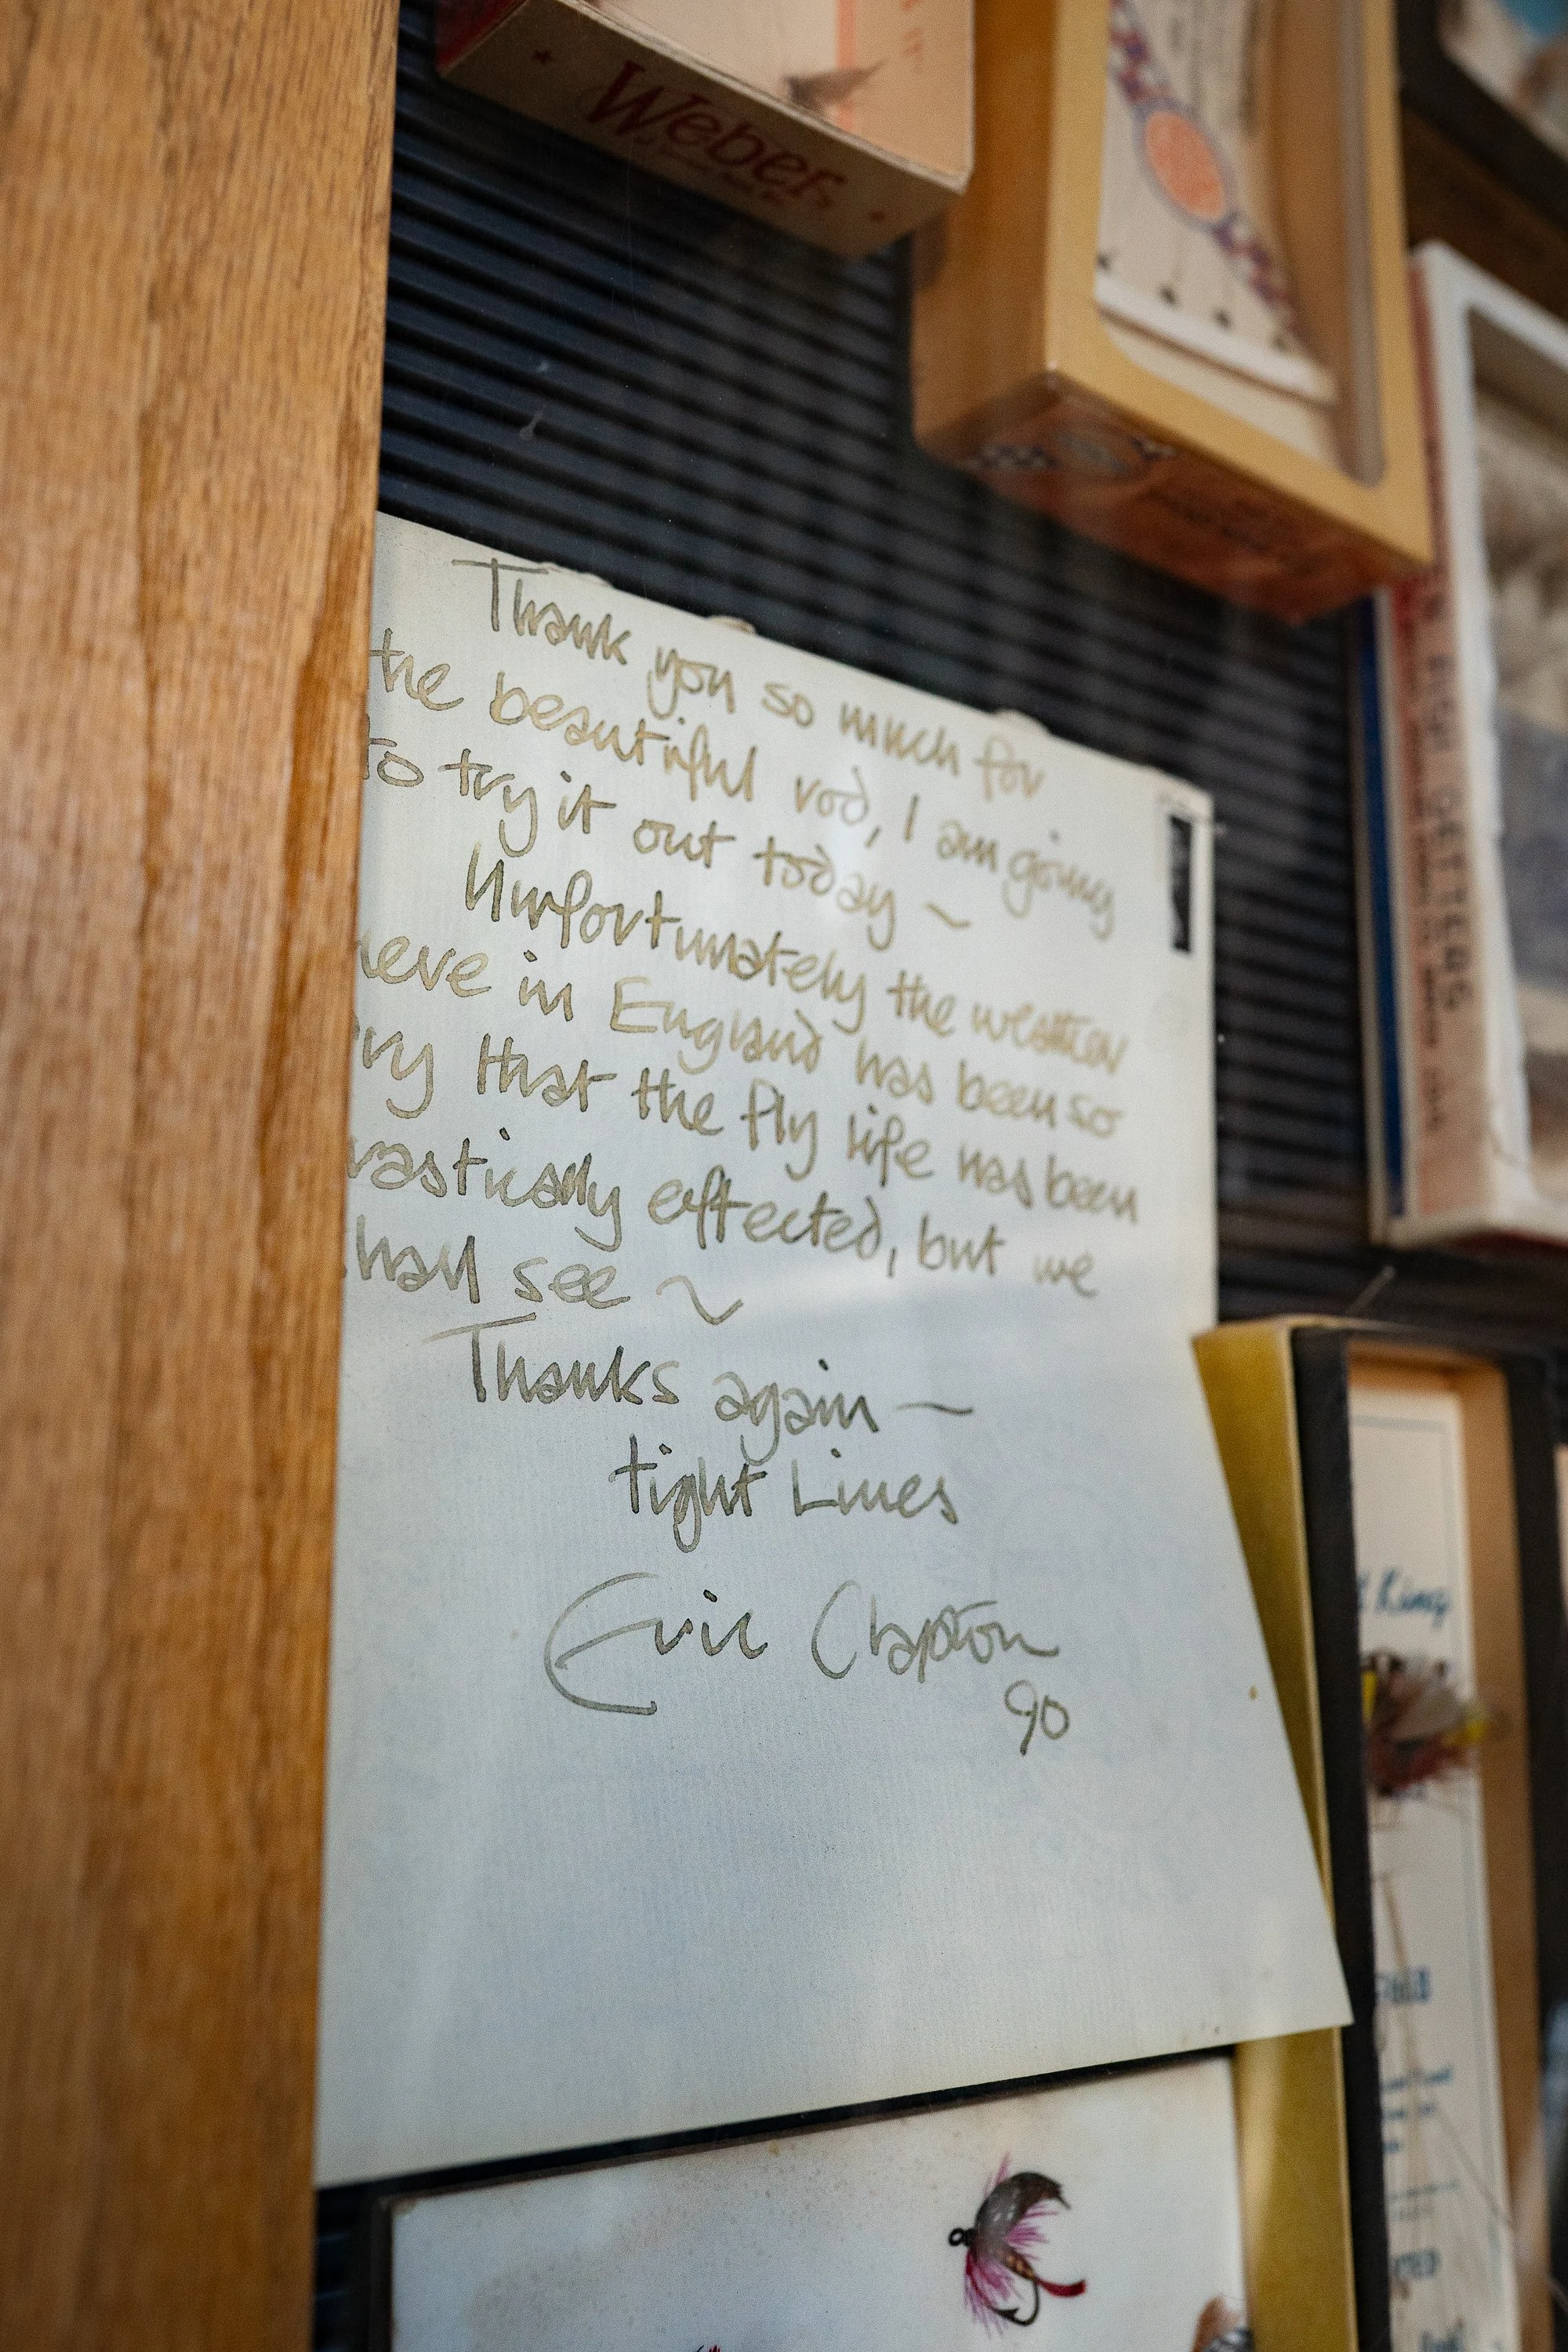 Weber
Thank you so much for
the beautiful rod, I am going
to try it out today ~
Unfortunately the weather
here in England has been so
ry that the fly life has been
rastically effected, but we
hall see ~
Thanks again —
tight Lines
Eric Clapton
90
King